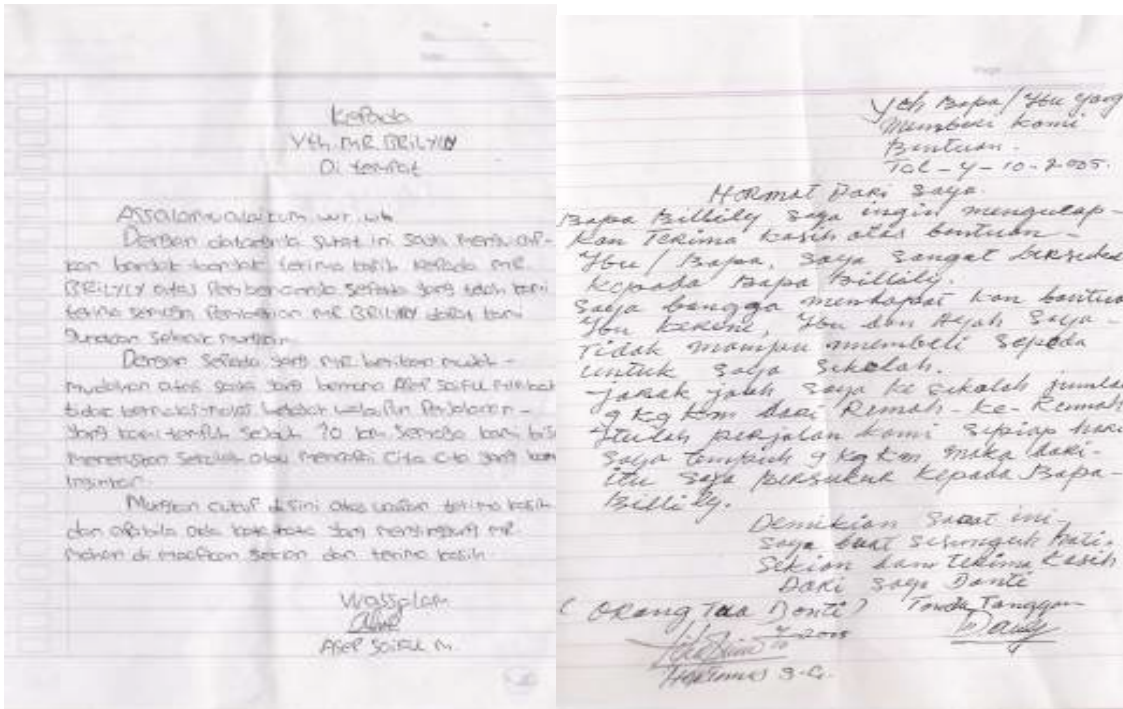 Kepada
Yth. MR. BRILYLY
Di tempat
Assalamualaikum wr. wb.
Dengan datangnya surat ini saya mengucap-
kan banyak-banyak terima kasih kepada MR.
BRILYLY atas Pemberiannya sepeda yang telah kami
terima semoga Pemberian MR BRILYLY dapat kami
gunakan sebaik mungkin.
Dengan sepeda yang MR. berikan mudah-
mudahan atas saya yang bernama ASEP SAIFUL
tidak bermalas-malas sekolah walaupun Perjalanan-
yang kami tempuh sejauh 20 km semoga kami bis
meneruskan sekolah atau mencapai cita cita yang kam
inginkan.
Mungkin cukup disini atas ucapan terima kasih
dan apabila ada kata-kata yang menyinggung MR.
mohon di maafkan sekian dan terima kasih.
Wassalam
ASEP SAIFUL M.
Yth Bapa/Ibu yang
Memberi kami
Bantuan.
TGL-4-10-2005.
HORMAT DARI Saya.
Bapa Billily saya ingin mengucap-
kan Terima kasih atas bantuan-
Ibu/Bapa, saya sangat bersukur
kepada Bapa Billily.
Saya bangga mendapat kan bantuan
Ibu Ibu dan Ayah Saya-
Tidak mampu membeli sepeda
untuk saya sekolah.
-jarak jauh saya ke sekolah jumlah
9 kg km dari Rumah-ke-Rumah
Itulah perjalan kami sepiap hari
saya tempuh 9 kg km maka dari-
itu saya Bersukur kepada Bapa-
Billily.
Demikian surat ini-
saya buat sesungguh hati.
Sekian dan Terima kasih
DARI saya Donti
(ORang Tua Donti) Tanda Tanggan